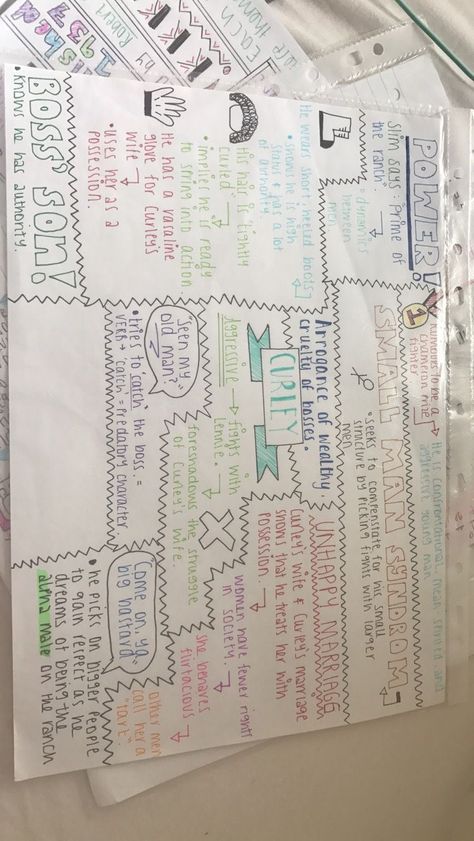 POWER!
Slim says: 'Prime of
the ranch'.
dynamic
between
men.
He wears short, heeled boots
• shows he is high
status & has a lot
of authority.
His hair is tightly
curled
• implies he is ready
to spring into action.
He has a vaseline
glove for Curley's
wife
• Uses her as a
possession.
BOSS' SON!
• knows he has authority.
1
fighter
He is confrontational, mean spirited and
aggressive young man
SMALL MAN SYNDROM
• seeks to compensate for his small
structure by picking fights with larger
men
Arrogance of wealthy.
cruelty of bosses.
CURLEY
aggressive → fights with
Lennie.
foreshadows the struggle
of Curley's wife.
"Seen my
old man?"
• tries to 'catch' the boss. =
VERB = 'catch' = predatory character.
UNHAPPY MARRIAGE
Curley's wife & Curley's marriage
shows that he treats her with
possession.
women have fewer rights
in society.
she behaves
flirtacious
other men
call her a
"tart".
"Come on, ya
big bastard
• he picks on bigger people
to gain respect as he
dreams of being the
alpha male on the ranch
1937
by
Robert
each